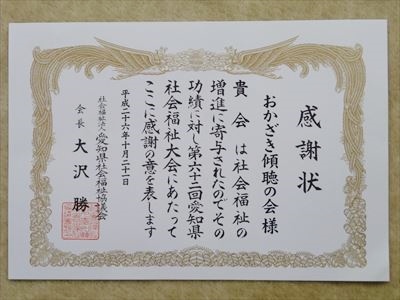 感謝状
おかざき傾聴の会様
貴会は社会福祉の
増進に寄与されたのでその
功績に対し第六十二回愛知県
社会福祉大会にあたって
ここに感謝の意を表します
平成二十六年十月二十一日
社会福祉法人愛知県社会福祉協議会
会長 大沢勝